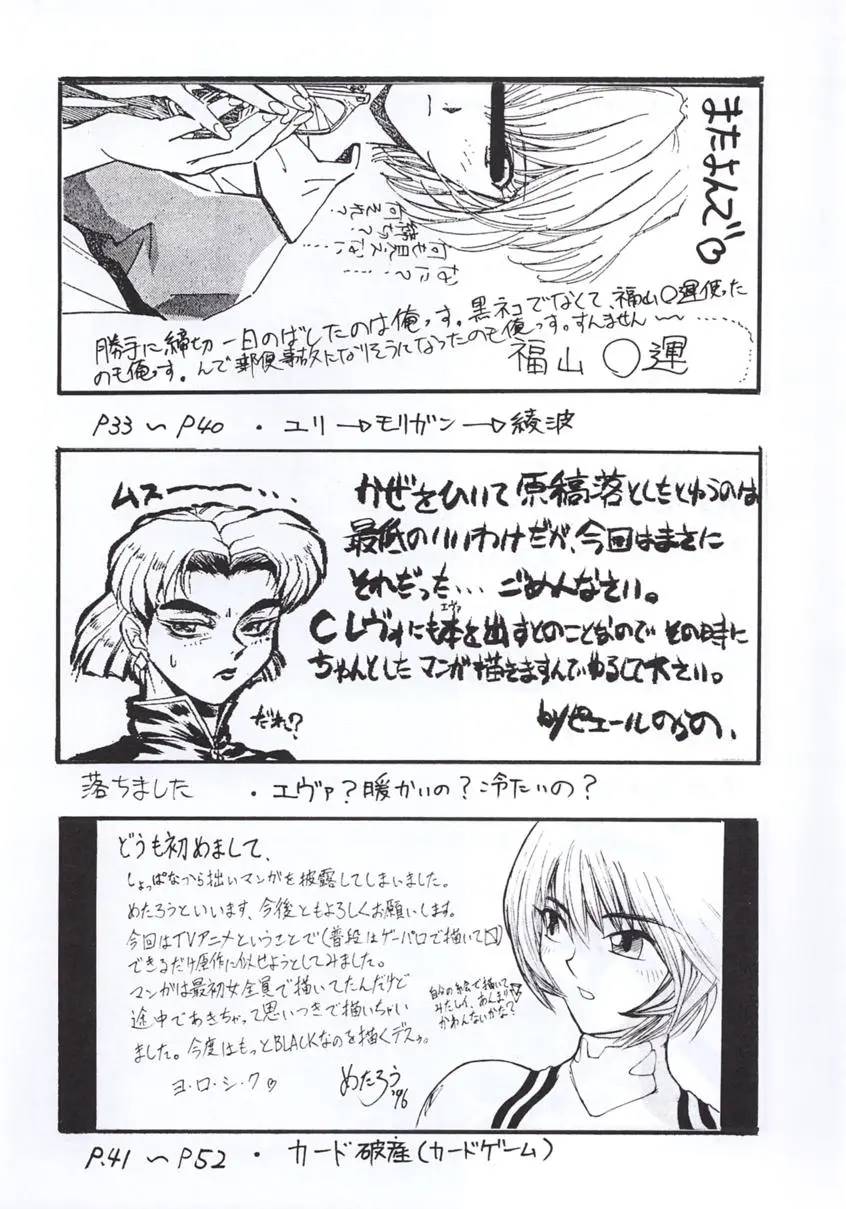 またよんで♡
何それ?
落ち?
何も見えない
なに?
勝手に締切一日のばしたのは俺っす。黒ネコでなくて、福山〇運使った
のも俺っす。んで郵便事故になりそうになったのも俺っす。すんません
福山〇運
P33〜P40・ユリ→モリガン→綾波
ムスーーー、・・・
かぜをひいて原稿落としたとゆうのは
最低のいいわけだが、今回はまさに
それだった・・・ごめんなさい。
Cレヴォにもエヴァ本を出すとのことなので その時に
ちゃんとしたマンガ描きますんでゆるして下さい。
だれ?
落ちました ・エヴァ?暖かいの?冷たいの?
どうも初めまして、
しょっぱなから拙いマンガを披露してしまいました。
めたろうといいます、今後ともよろしくお願いします。
今回はTVアニメということで(普段はゲーパロで描いて
できるだけ原作に似せようとしてみました。
マンガは最初女全員で描いてたんだけど
途中であきちゃって思いつきで描いちゃい
ました。今度はもっとBLACKなのを描くデスゥ。
自分の絵で描いて
みたレイ、あんまり
かわんないかなぁ
ヨ・ロ・シ・ク♡
めたろう
'96
P.41〜P52・カード破産(カードゲーム)